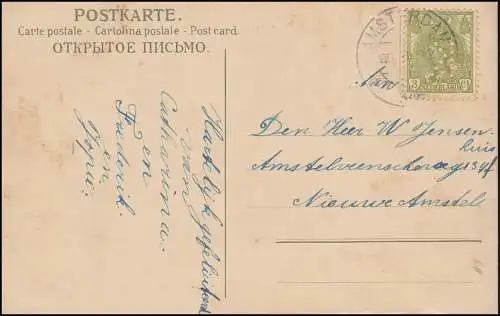 POSTKARTE.
Carte postale - Cartolina postale - Post card.
ОТКРЫТОЕ ПИСЬМО.
Hartelijk gefeliciteerd
van
Catharina.
en
Frederik.
en
AMSTERDAM
3 Ct
NEDERLAND
Aan
Den Heer W Jensen
huis
Amstelveenscheweg
Nieuwer Amstel